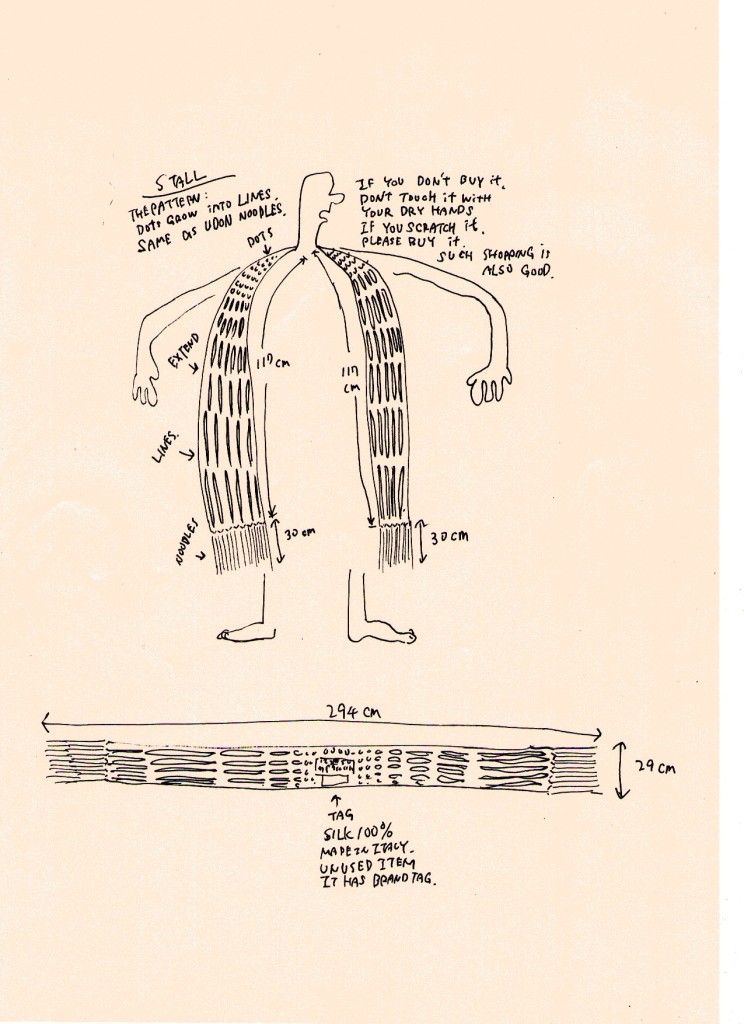 STALL
THE PATTERN:
DOTS GROW INTO LINES.
SAME AS UDON NOODLES.
DOTS
IF YOU DON'T BUY it,
DON'T TOUCH it WITH
YOUR DRY HANDS
IF YOU SCRATCH it.
PLEASE BUY it.
SUCH SHOPPING is
ALSO GOOD.
EXTEND
117 cm
117
cm
LINES.
NOODLES
30 cm
30 cm
294 cm
29 cm
TAG
SILK 100%
MADE IN ITALY.
UNUSED ITEM
IT HAS BRAND TAG.